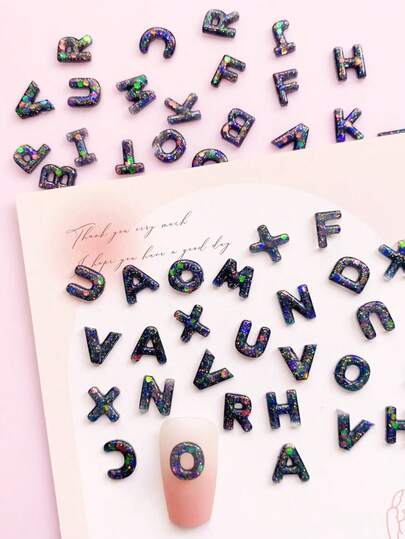 R C R I
V M F F H
K B K
R B I T O
Thank you very much
I hope you have a good day
X F
U A O M N D X
V A X U U
X N V V O
R H V H
C O A